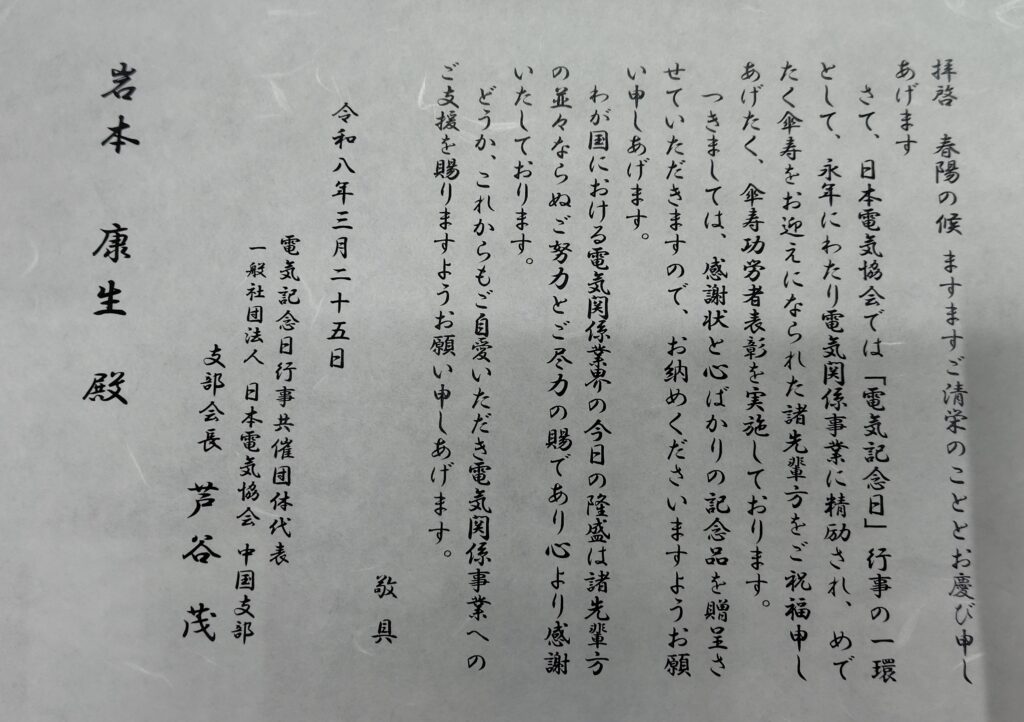 拝啓　春陽の候 ますますご清栄のこととお慶び申し
あげます
さて、日本電気協会では「電気記念日」行事の一環
として、永年にわたり電気関係事業に精励され、めで
たく傘寿をお迎えになられた諸先輩方をご祝福申し
あげたく、傘寿功労者表彰を実施しております。
つきましては、感謝状と心ばかりの記念品を贈呈さ
せていただきますので、お納めくださいますようお願
い申しあげます。
わが国における電気関係業界の今日の隆盛は諸先輩方
の並々ならぬご努力とご尽力の賜であり心より感謝
いたしております。
どうか、これからもご自愛いただき電気関係事業への
ご支援を賜りますようお願い申しあげます。
敬具
令和八年三月二十五日
電気記念日行事共催団体代表
一般社団法人 日本電気協会 中国支部
支部会長 芦谷 茂
岩本 康生 殿